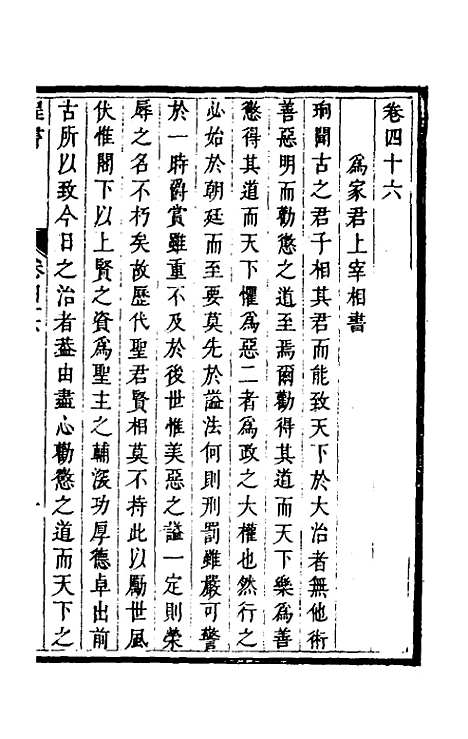 卷四十六
爲家君上宰相書
珦聞古之君子相其君而能致天下於大治者無他術
善惡明而勸懲之道至焉爾勸得其道而天下樂爲善
懲得其道而天下懼爲惡二者爲政之大權也然行之
必始於朝廷而至要莫先於謚法何則刑罰雖嚴可警
於一時爵賞雖重不及於後世惟美惡之謚一定則榮
辱之名不朽矣故歷代聖君賢相莫不持此以勵世風
伏惟閤下以上賢之資爲聖主之輔深功厚德卓出前
古所以致今日之治者葢由盡心勸懲之道而天下之